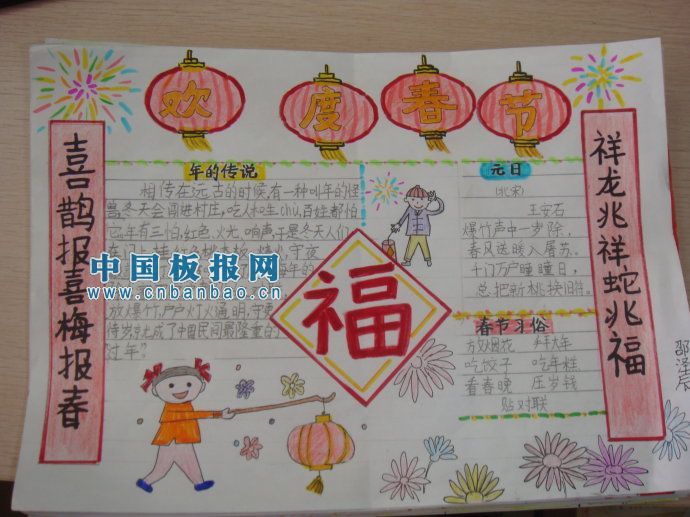 欢度春节
喜鹊报喜梅报春
年的传说
相传在远古的时候,有一种叫年的怪
兽,冬天会闯进村庄,吃人和生chu,百姓都怕
它,年有三怕,红色、火光、响声,于是冬天人们
守夜
中国板报网
www.cnbanbao.cn
放爆竹,户户灯火通明,守更
待岁,就成了中国民间最隆重的
过年”
福
元日
(北宋)
王安石
爆竹声中一岁除,
春风送暖入屠苏。
千门万户曈曈日,
总把新桃换旧符。
春节习俗
放烟花 拜大年
吃饺子 吃年糕
看春晚 压岁钱
贴对联
祥龙兆祥蛇兆福
邵泽辰